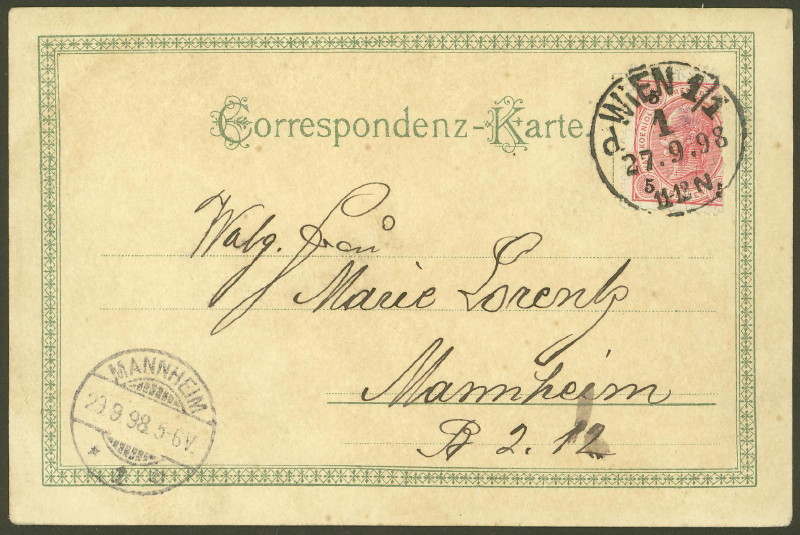 Correspondenz-Karte.
WIEN 1/1
1
27.9.98
11-12 N
Frau
Marie Lorentz
Mannheim
B 2. 12
MANNHEIM
9 98 5-6V.